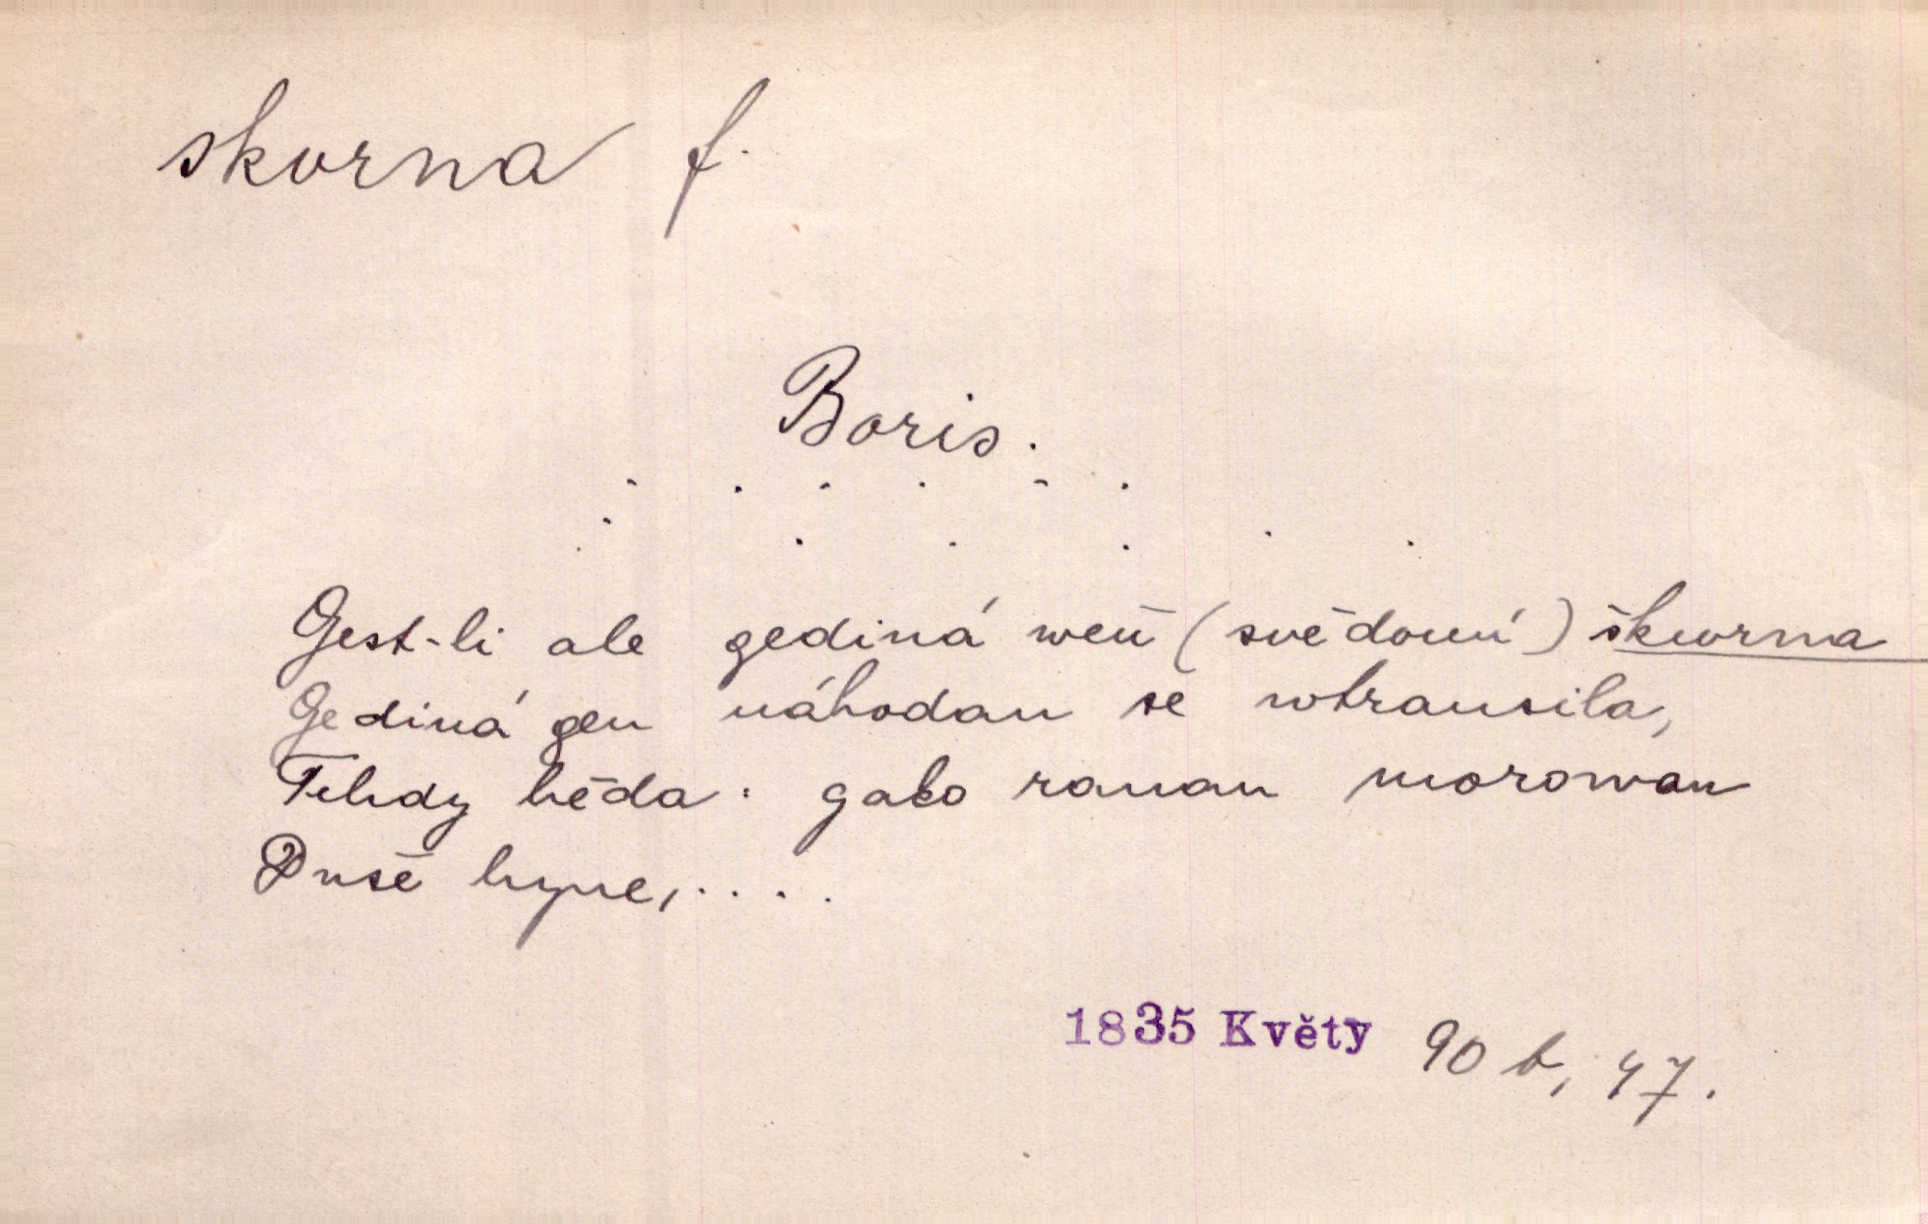 skvrna f.
Boris.
. . . . . .
. . . . . . .
Gest-li ale gediná weň (svědomí) škwrna
Gediná gen náhodau se wtrausila,
Tehdy běda: gako ranau morowau
Duše hyne, . . . .
1835 Květy 90 b, 47.